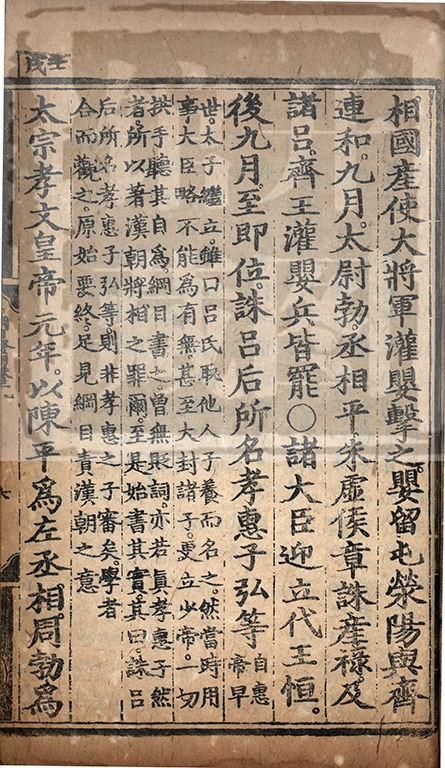 相國產使大將軍灌嬰擊之嬰留屯滎陽與齊
連和。九月。太尉勃。丞相平。朱虛侯章誅產祿。及
諸呂。齊王灌嬰兵皆罷○諸大臣迎立代王恒。
後九月。至即位。誅呂后所名孝惠子弘等
自惠
帝早
世。太子繼立。雖口呂氏取他人子養而名之。然當時用
事大臣略不能為有無。甚至大封諸子。更立少帝。一切
拱手聽其自為。綱目書之。曾無貶詞。亦若眞孝惠子然
者。所以著漢朝將相之罪爾。至是始書其實。其曰。誅呂
后所名孝惠子弘等。則非孝惠之子審矣。學者
合而觀之。原始要終。足見綱目責漢朝之意
太宗孝文皇帝元年。以陳平為左丞相。周勃為